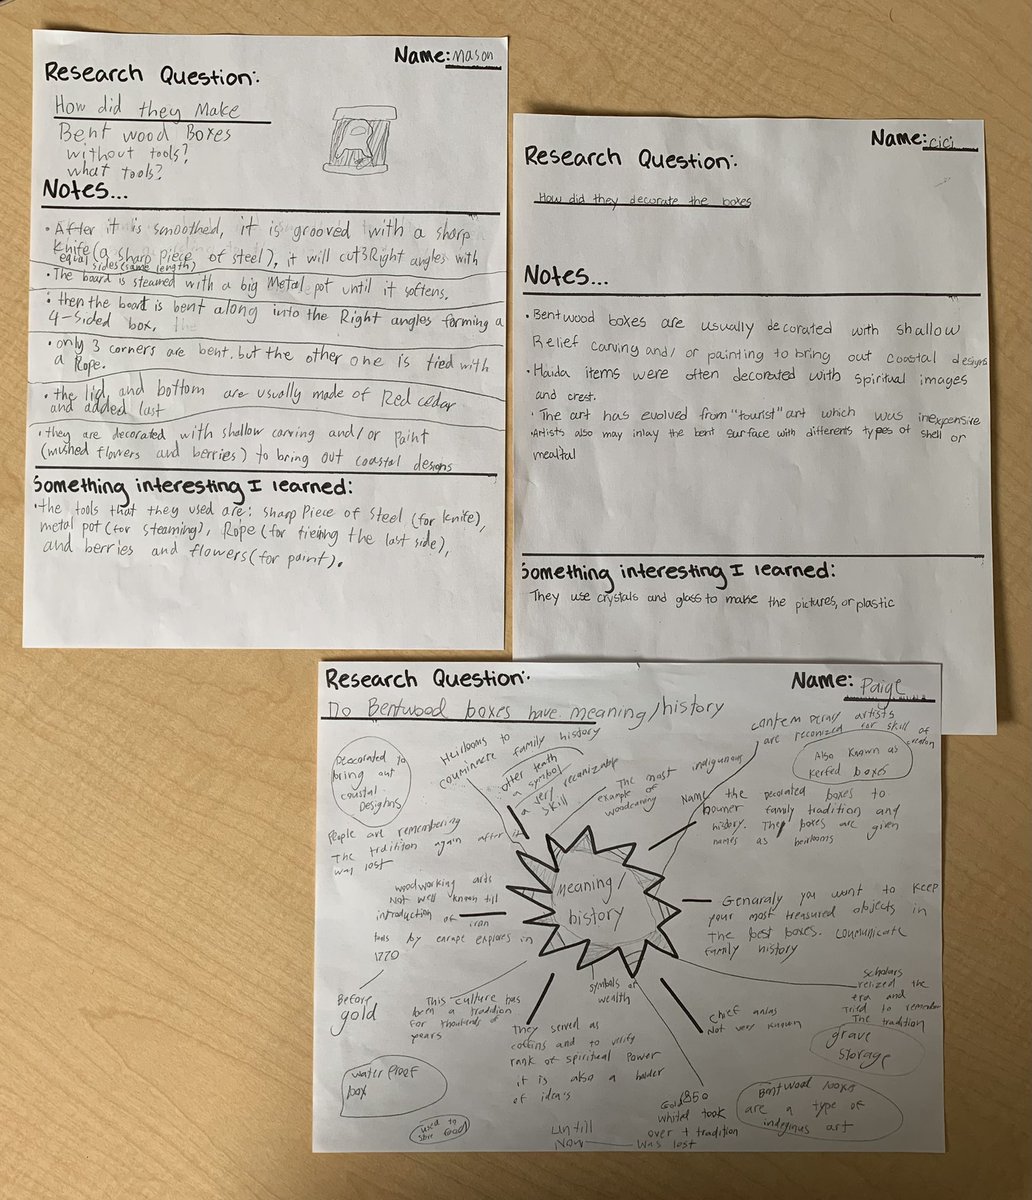 Name: Mason
Research Question:
How did they Make
Bent wood Boxes
without tools?
what tools?
Notes...
• After it is smoothed, it is grooved with a sharp
knife (a sharp piece of steel), it will cut 3 Right angles with
equal sides (same length)
• The board is steamed with a big Metal pot until it softens.
• then the board is bent along into the Right angles forming a
4-sided box.
• only 3 corners are bent. but the other one is tied with
a Rope.
• the lid and bottom are usually made of Red cedar
and added last
• they are decorated with shallow carving and/or paint
(mushed flowers and berries) to bring out coastal designs
Something interesting I learned:
• the tools that they used are: sharp Piece of Steel (for knife),
metal pot (for steaming), Rope (for tieing the last side),
and berries and flowers (for paint).
Name: cici
Research Question:
How did they decorate the boxes
Notes...
• Bentwood boxes are usually decorated with shallow
Relief carving and/or painting to bring out coastal designs
• Haida items were often decorated with spiritual images
and crest.
• The art has evolved from "tourist" art which was inexpensive
• Artists also may inlay the bent surface with differents types of shell or
mealtal
Something interesting I learned:
They use crystals and glass to make the pictures, or plastic
Research Question:
Name: Paige
Do Bentwood boxes have meaning/history
Decorated to
bring out
coastal
Designs
Heirlooms to
family history
a symbol
a very recanizable
skill
The most indigunous
example of
artists
are reconized for skill of
Also known as
kerfed boxes
People are remembering
The tradititon again after it
was lost
Name the decorated boxes to
family tradition and
history. They boxes are given
names as heirlooms
woodworking
Not well known till
introduction of iron
tools by europe explores in
1770
Before
gold
meaning/
history
Genaraly you want to keep
your most treasured objects in
The best boxes. coumunicate
family history
This culture has
been a tradition
for thouthands of
years
symbols of
wealth
They served as
coffins and to verify
rank of spiritual power
it is also a holder
of idea's
chief
Not very known
scholars
relized the
era and
Tried to remember
The tradition
grave
storage
water Proof
box
used to
store food
untill
Now
Gold
took
over + tradition
was lost
Bentwood boxes
are a type of
indeginus art